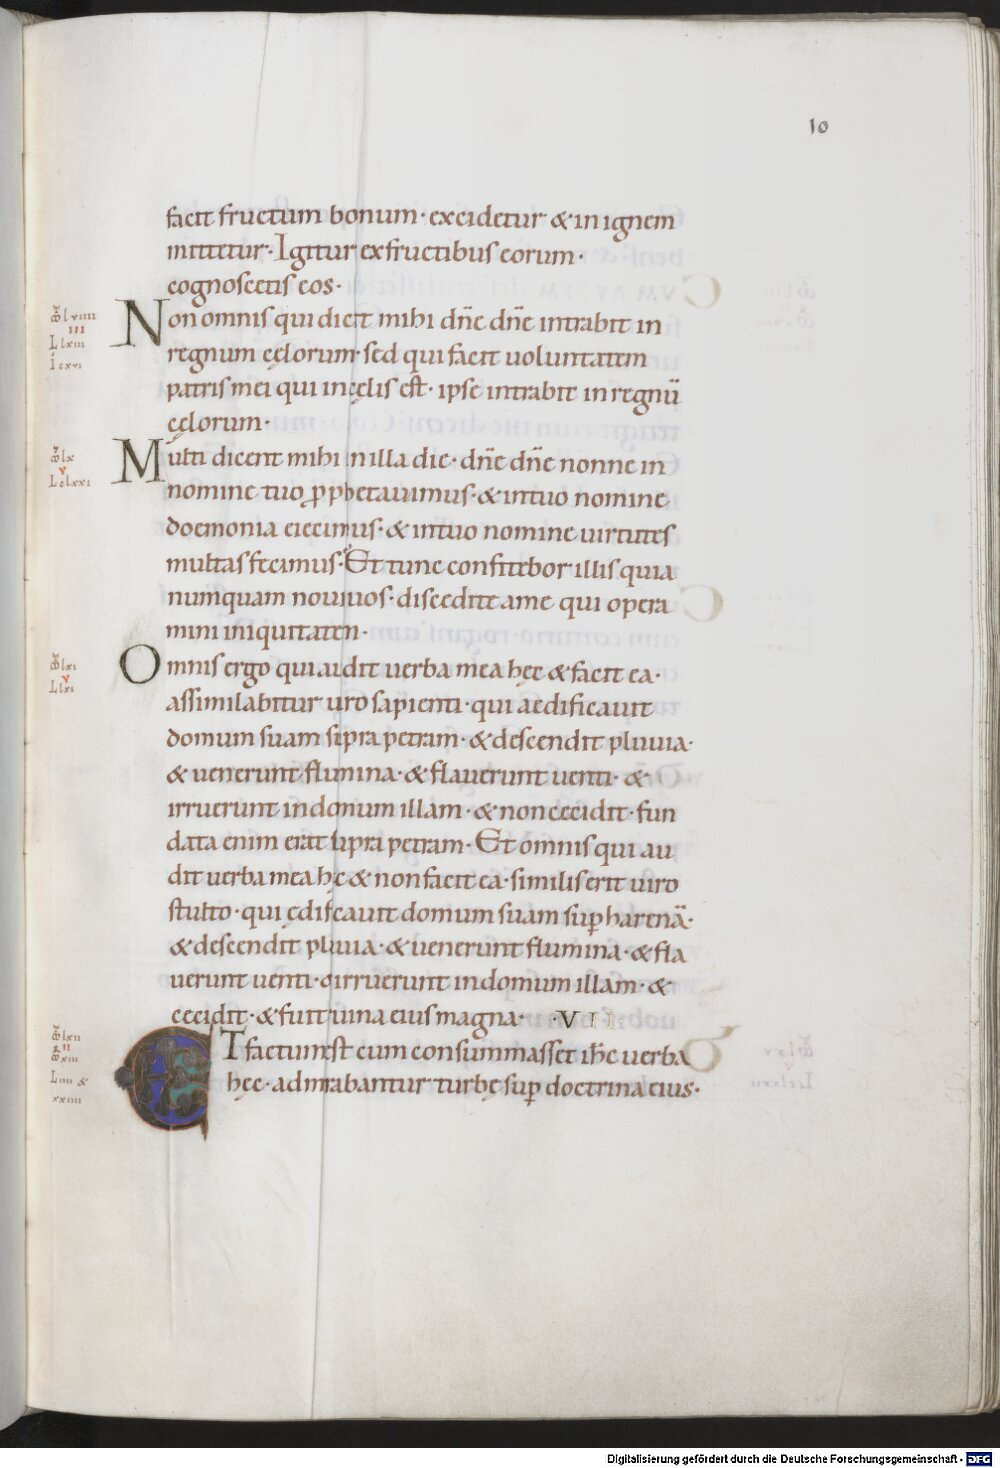 10
facit fructum bonum· excidetur & in ignem
mittetur· Igitur ex fructibus eorum·
cognoscetis eos·
Non omnis qui dicit mihi dn̄e dn̄e intrabit in
regnum cęlorum· sed qui facit uoluntatem
patris mei qui in cęlis est· ipse intrabit in regnū
cęlorum·
Multi dicent mihi in illa die· dn̄e dn̄e nonne in
nomine tuo pphetauimus· & in tuo nomine
doemonia eiecimus· & in tuo nomine uirtutes
multas fecimus· Et tunc confitebor illis quia
numquam noui uos· discedite a me qui opera
mini iniquitatem·
Omnis ergo qui audit uerba mea hęc & facit ea·
assimilabitur uiro sapienti· qui aedificauit
domum suam supra petram· & descendit pluuia·
& uenerunt flumina· & flauerunt uenti· &
irruerunt in domum illam· & non cecidit· fun
data enim erat supra petram· Et omnis qui au
dit uerba mea hęc & non facit ea· similis erit uiro
stulto· qui ędificauit domum suam sup harenā·
& descendit pluuia· & uenerunt flumina· & fla
uerunt uenti· & irruerunt in domum illam· &
cecidit· & fuit ruina eius magna· ·VII·
ET factum est cum consummasset ih̄c uerba
hęc· admirabantur turbę sup doctrina eius·
Lxiii
Lclxxi
Llxi
xxiiii
Digitalisierung gefördert durch die Deutsche Forschungsgemeinschaft - DFG